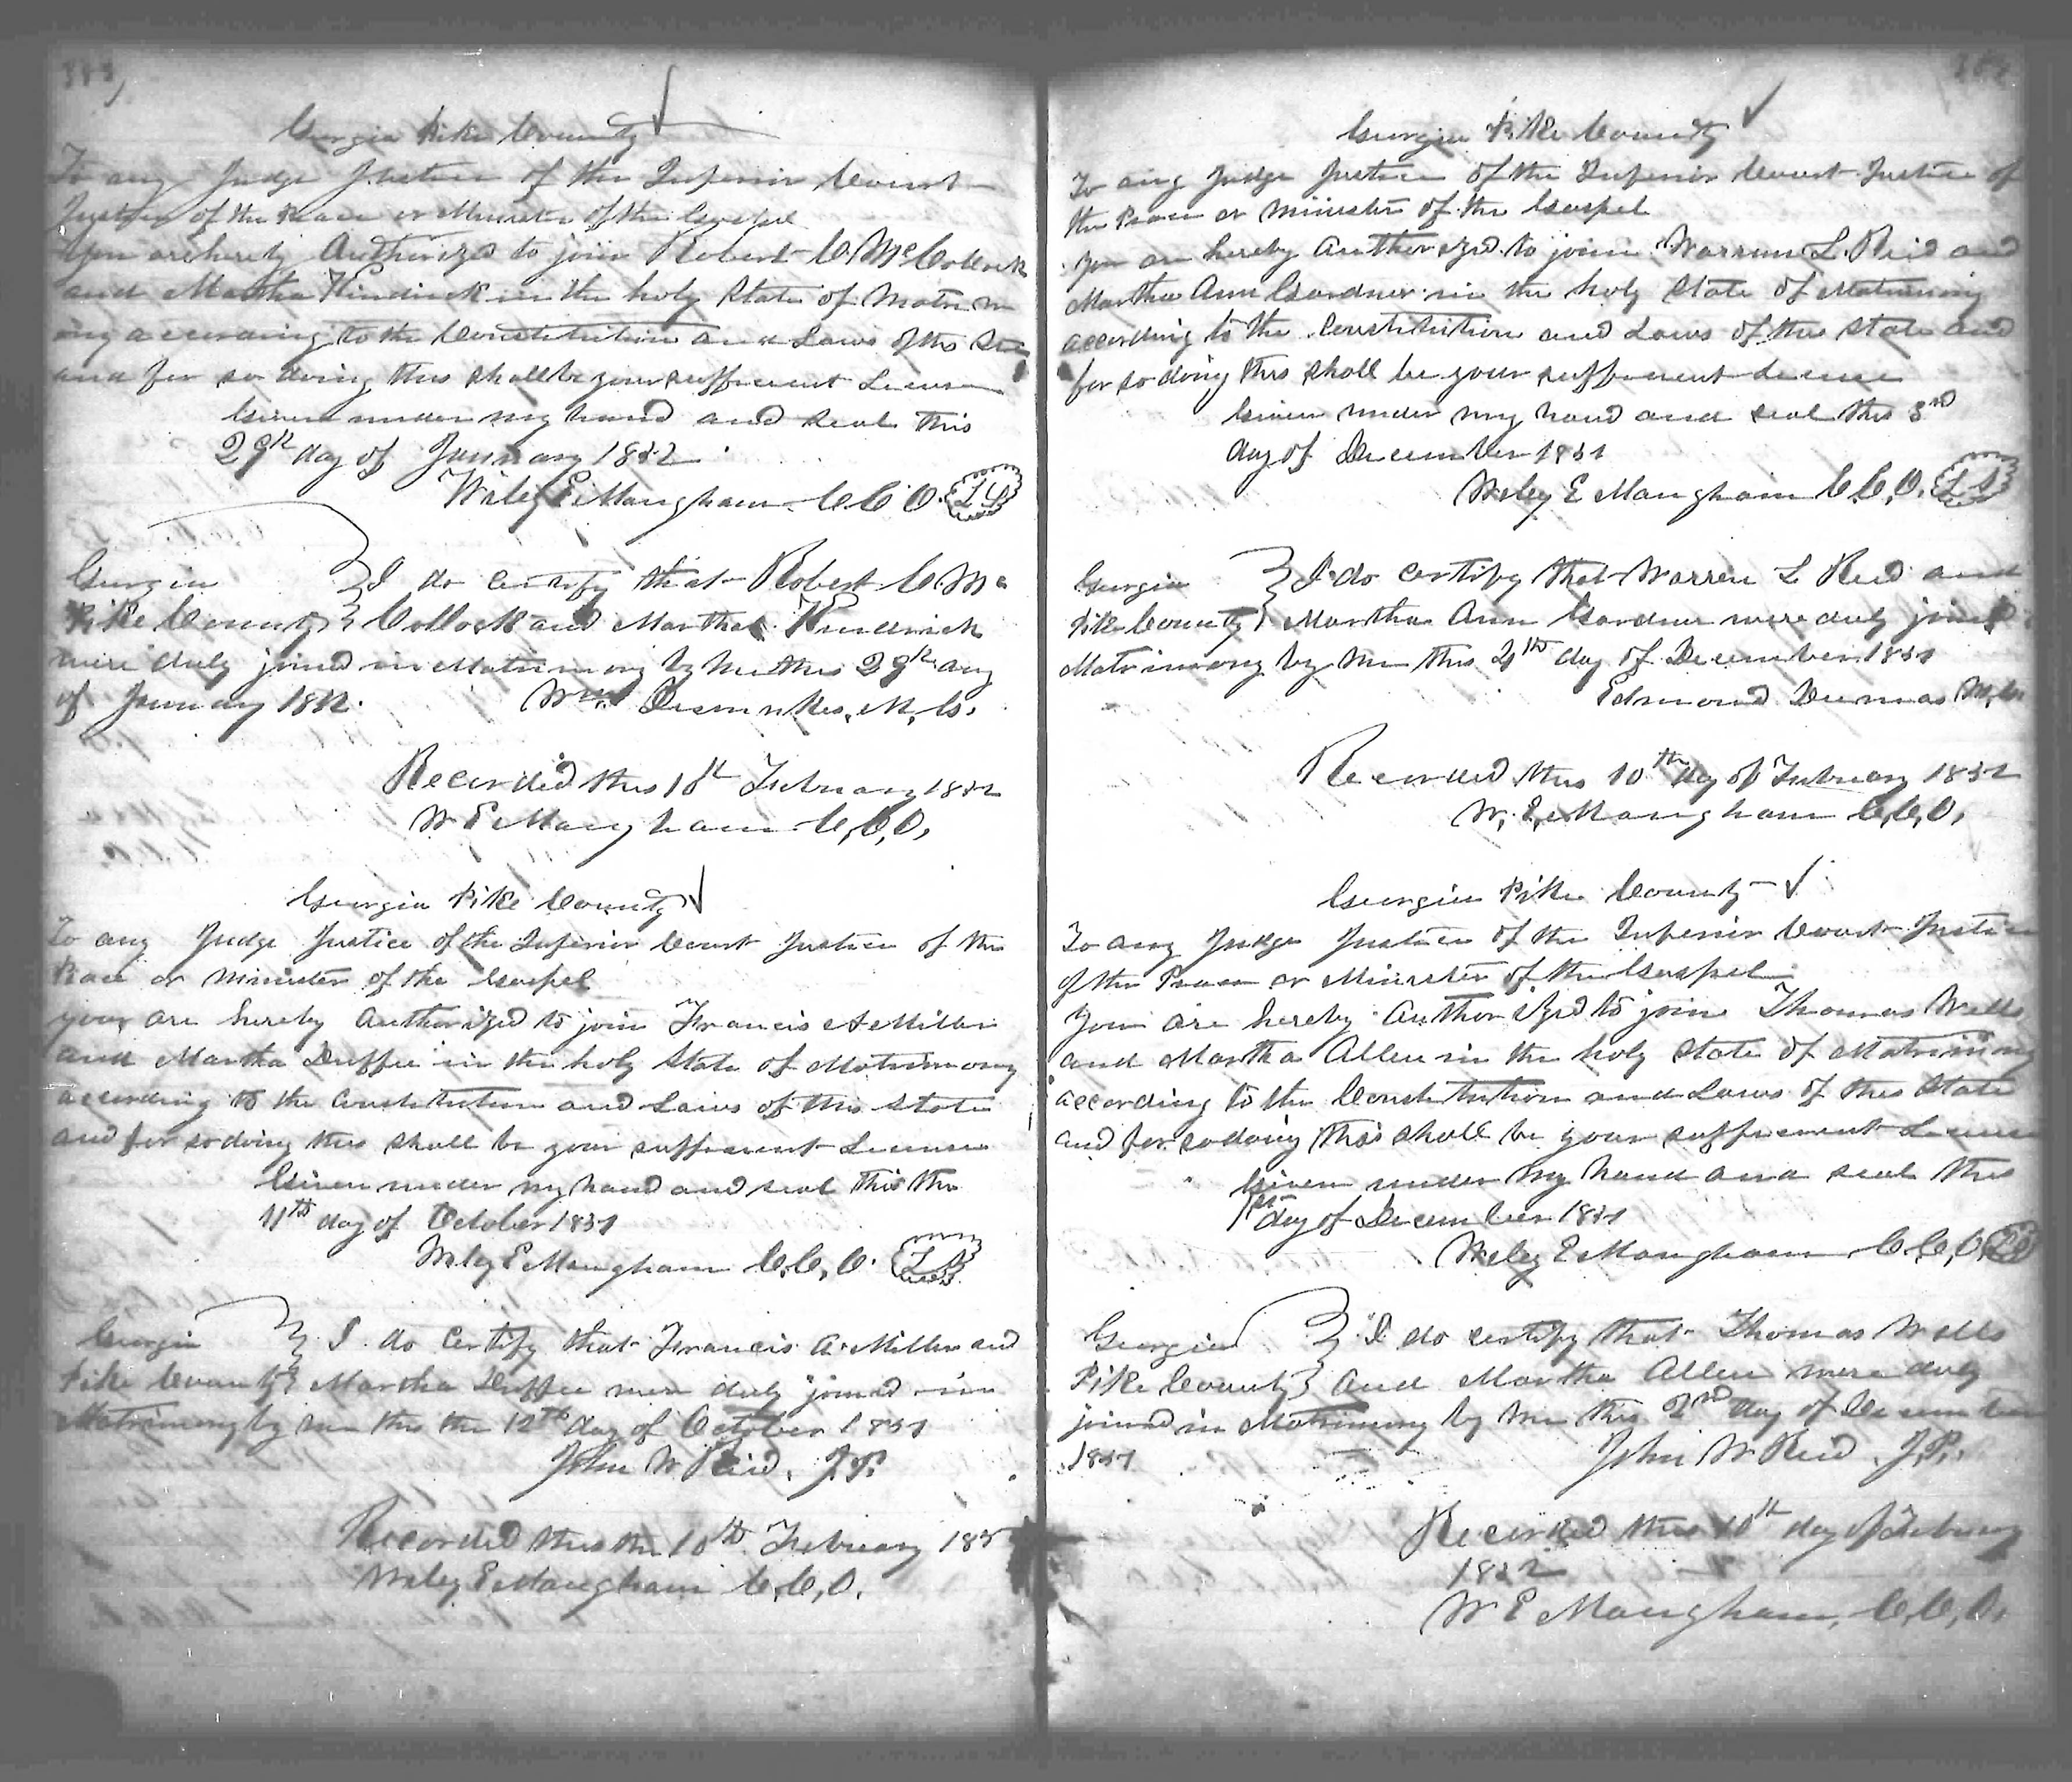 Georgia Pike County
To any Judge Justice of the Inferior Court
Justice of the Peace or Minister of the Gospel
You are hereby Authorized to join Robert C. McCollock
and Martha Kindrick in the holy State of Matrim
ony according to the Constitution and Laws of this State
and for so doing this shall be your sufficient License
Given under my hand and seal this
29th day of January 1852
Wiley E Mangham C. C. O. L S
Georgia I do certify that Robert C. Mc
Pike County Collock and Martha Kindrick
were duly joined in Matrimony by me this 29th day
of January 1852. Wm. Dismukes, M. G.
Recorded this 10th February 1852
W E Mangham C, C, O,
Georgia Pike County
To any Judge Justice of the Inferior Court Justice of the
Peace or Minister of the Gospel
you are hereby authorized to join Francis A Miller
and Martha Duffee in the holy State of Matrimony
according to the Constitution and Laws of this State
and for so doing this shall be your sufficient License
Given under my hand and seal this the
11th day of October 1851
Wiley E Mangham C. C, O. L S
Georgia I do Certify that Francis A. Miller and
Pike County Martha Duffee were duly joined in
Matrimony by me this the 12th day of October 1851
John W Reid, J. P.
Recorded this the 10th February 185
Wiley E Mangham C, C, O,
Georgia Pike County
To any Judge Justice of the Inferior Court Justice of
the Peace or Minister of the Gospel
You are hereby Authorized to join Warren L. Reid and
Martha Ann Gardner in the holy State of Matrimony
according to the Constitution and Laws of this State and
for so doing this shall be your sufficient license
Given under my hand and seal this 3rd
day of December 1851
Wiley E Mangham C. C, O. L S
Georgia I do certify that Warren L Reid and
Pike County Martha Ann Gardner were duly joined
Matrimony by me this 4th day of December 1851
Edmond Dumas M, G
Recorded this 10th day of February 1852
W. E, Mangham C, C, O,
Georgia Pike County
To any Judge Justice of the Inferior Court Justice
of the Peace or Minister of the Gospel
You are hereby Authorized to join Thomas Wells
and Martha Allen in the holy State of Matrimony
according to the Constitution and Laws of this State
and for so doing this shall be your sufficient License
Given under my hand and seal this
1st day of December 1851
Wiley E Mangham C. C, O, L S
Georgia I do certify that Thomas Wells
Pike County and Martha Allen were duly
joined in Matrimony by me this 2nd day of December
1851 John W Reid J. P.
Recorded this 10th day of February
1852
W E Mangham, C, C, O,